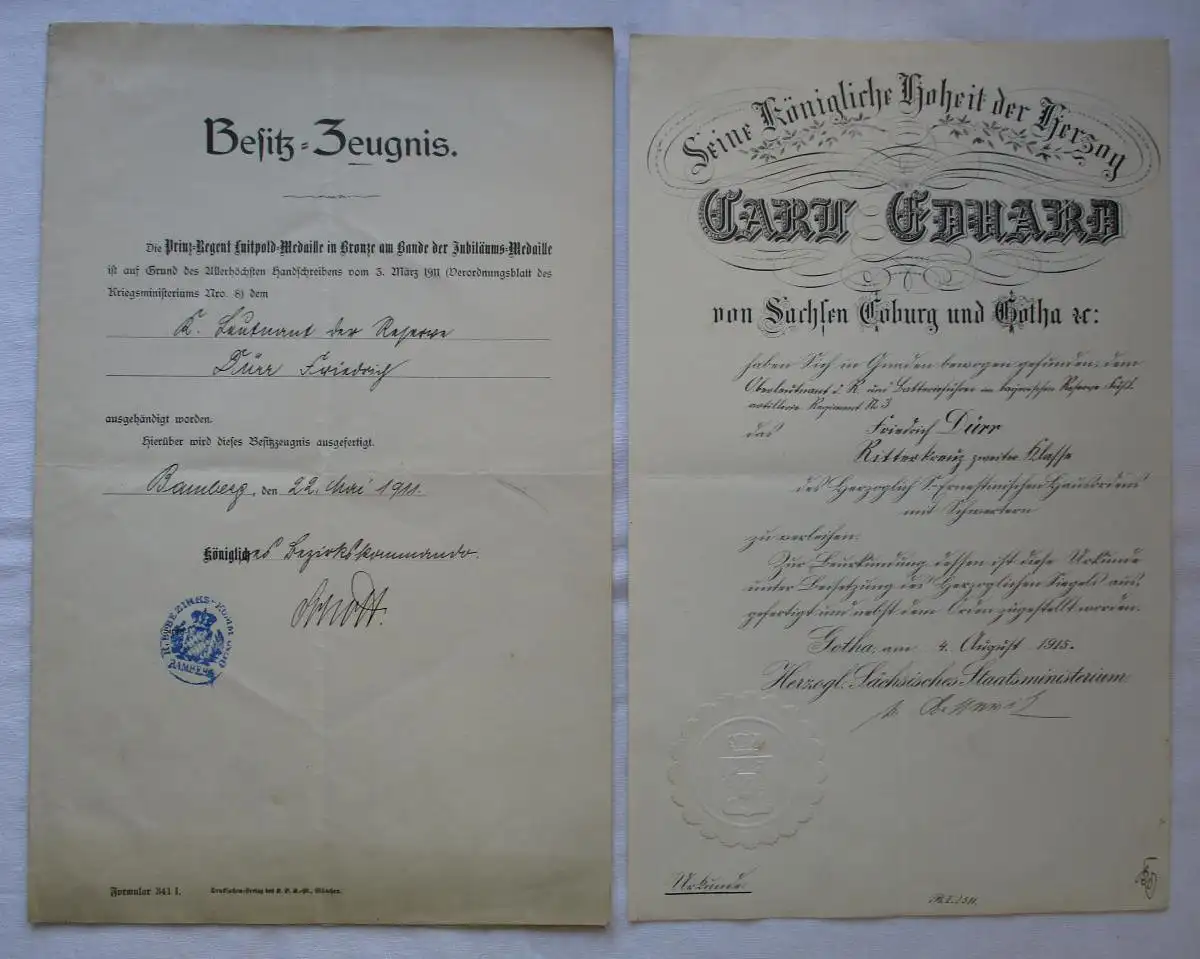 Besitz=Zeugnis.
Die Prinz-Regent Luitpold-Medaille in Bronze am Bande der Jubiläums-Medaille
ist auf Grund des Allerhöchsten Handschreibens vom 3. März 1911 (Verordnungsblatt des
Kriegsministeriums Nro. 8) dem
K. Leutnant der Reserve
Dürr Friedrich
ausgehändigt worden.
Hierüber wird dieses Besitzzeugnis ausgefertigt.
Bamberg, den 22. Mai 1911.
Königliches Bezirkskommando.
BAMBERG
Formular 341 I.
Seine Königliche Hoheit der Herzog
CARL EDUARD
von Sachsen Coburg und Gotha ꝛc:
haben Sich in Gnaden bewogen gefunden, dem
Oberleutnant d. R. und Batterieführer im bayerischen Reserve Fuß-
artillerie Regiment N. 3
Friedrich Dürr
das
Ritterkreuz zweiter Klasse
des Herzoglich S. Ernestinischen Hausordens
mit Schwertern
zu verleihen.
Zur Beurkundung dessen ist diese Urkunde
unter Beisetzung des Herzoglichen Siegels aus-
gefertigt und nebst dem Orden zugestellt worden.
Gotha, am 4. August 1915.
Herzogl. Sächsisches Staatsministerium
Urkunde